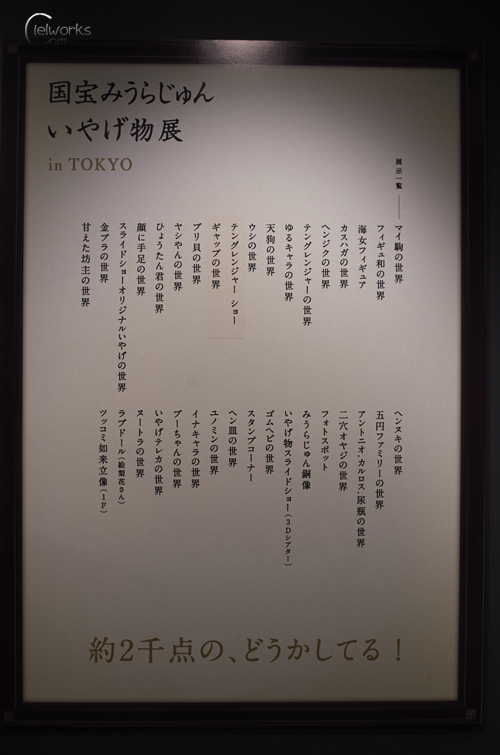 Cielworks
.com
国宝みうらじゅん
いやげ物展
in TOKYO
展示一覧
マイ駒の世界
フィギュ和の世界
海女フィギュア
カスハガの世界
ヘンジクの世界
テングレンジャーの世界
ゆるキャラの世界
天狗の世界
ウシの世界
テングレンジャー ショー
ギャップの世界
プリ貝の世界
ヤシやんの世界
ひょうたん君の世界
顔に手足の世界
スライドショーオリジナルいやげの世界
金プラの世界
甘えた坊主の世界
ヘンヌキの世界
五円ファミリーの世界
アントニオ・カルロス・尿瓶の世界
二穴オヤジの世界
フォトスポット
みうらじゅん銅像
いやげ物スライドショー（3Dシアター）
ゴムヘビの世界
スタンプコーナー
ヘン皿の世界
ユノミンの世界
イナキャラの世界
プーちゃんの世界
いやげテレカの世界
ヌートラの世界
ラブドール（絵梨花さん）
ツッコミ如来立像（1F）
約2千点の、どうかしてる！